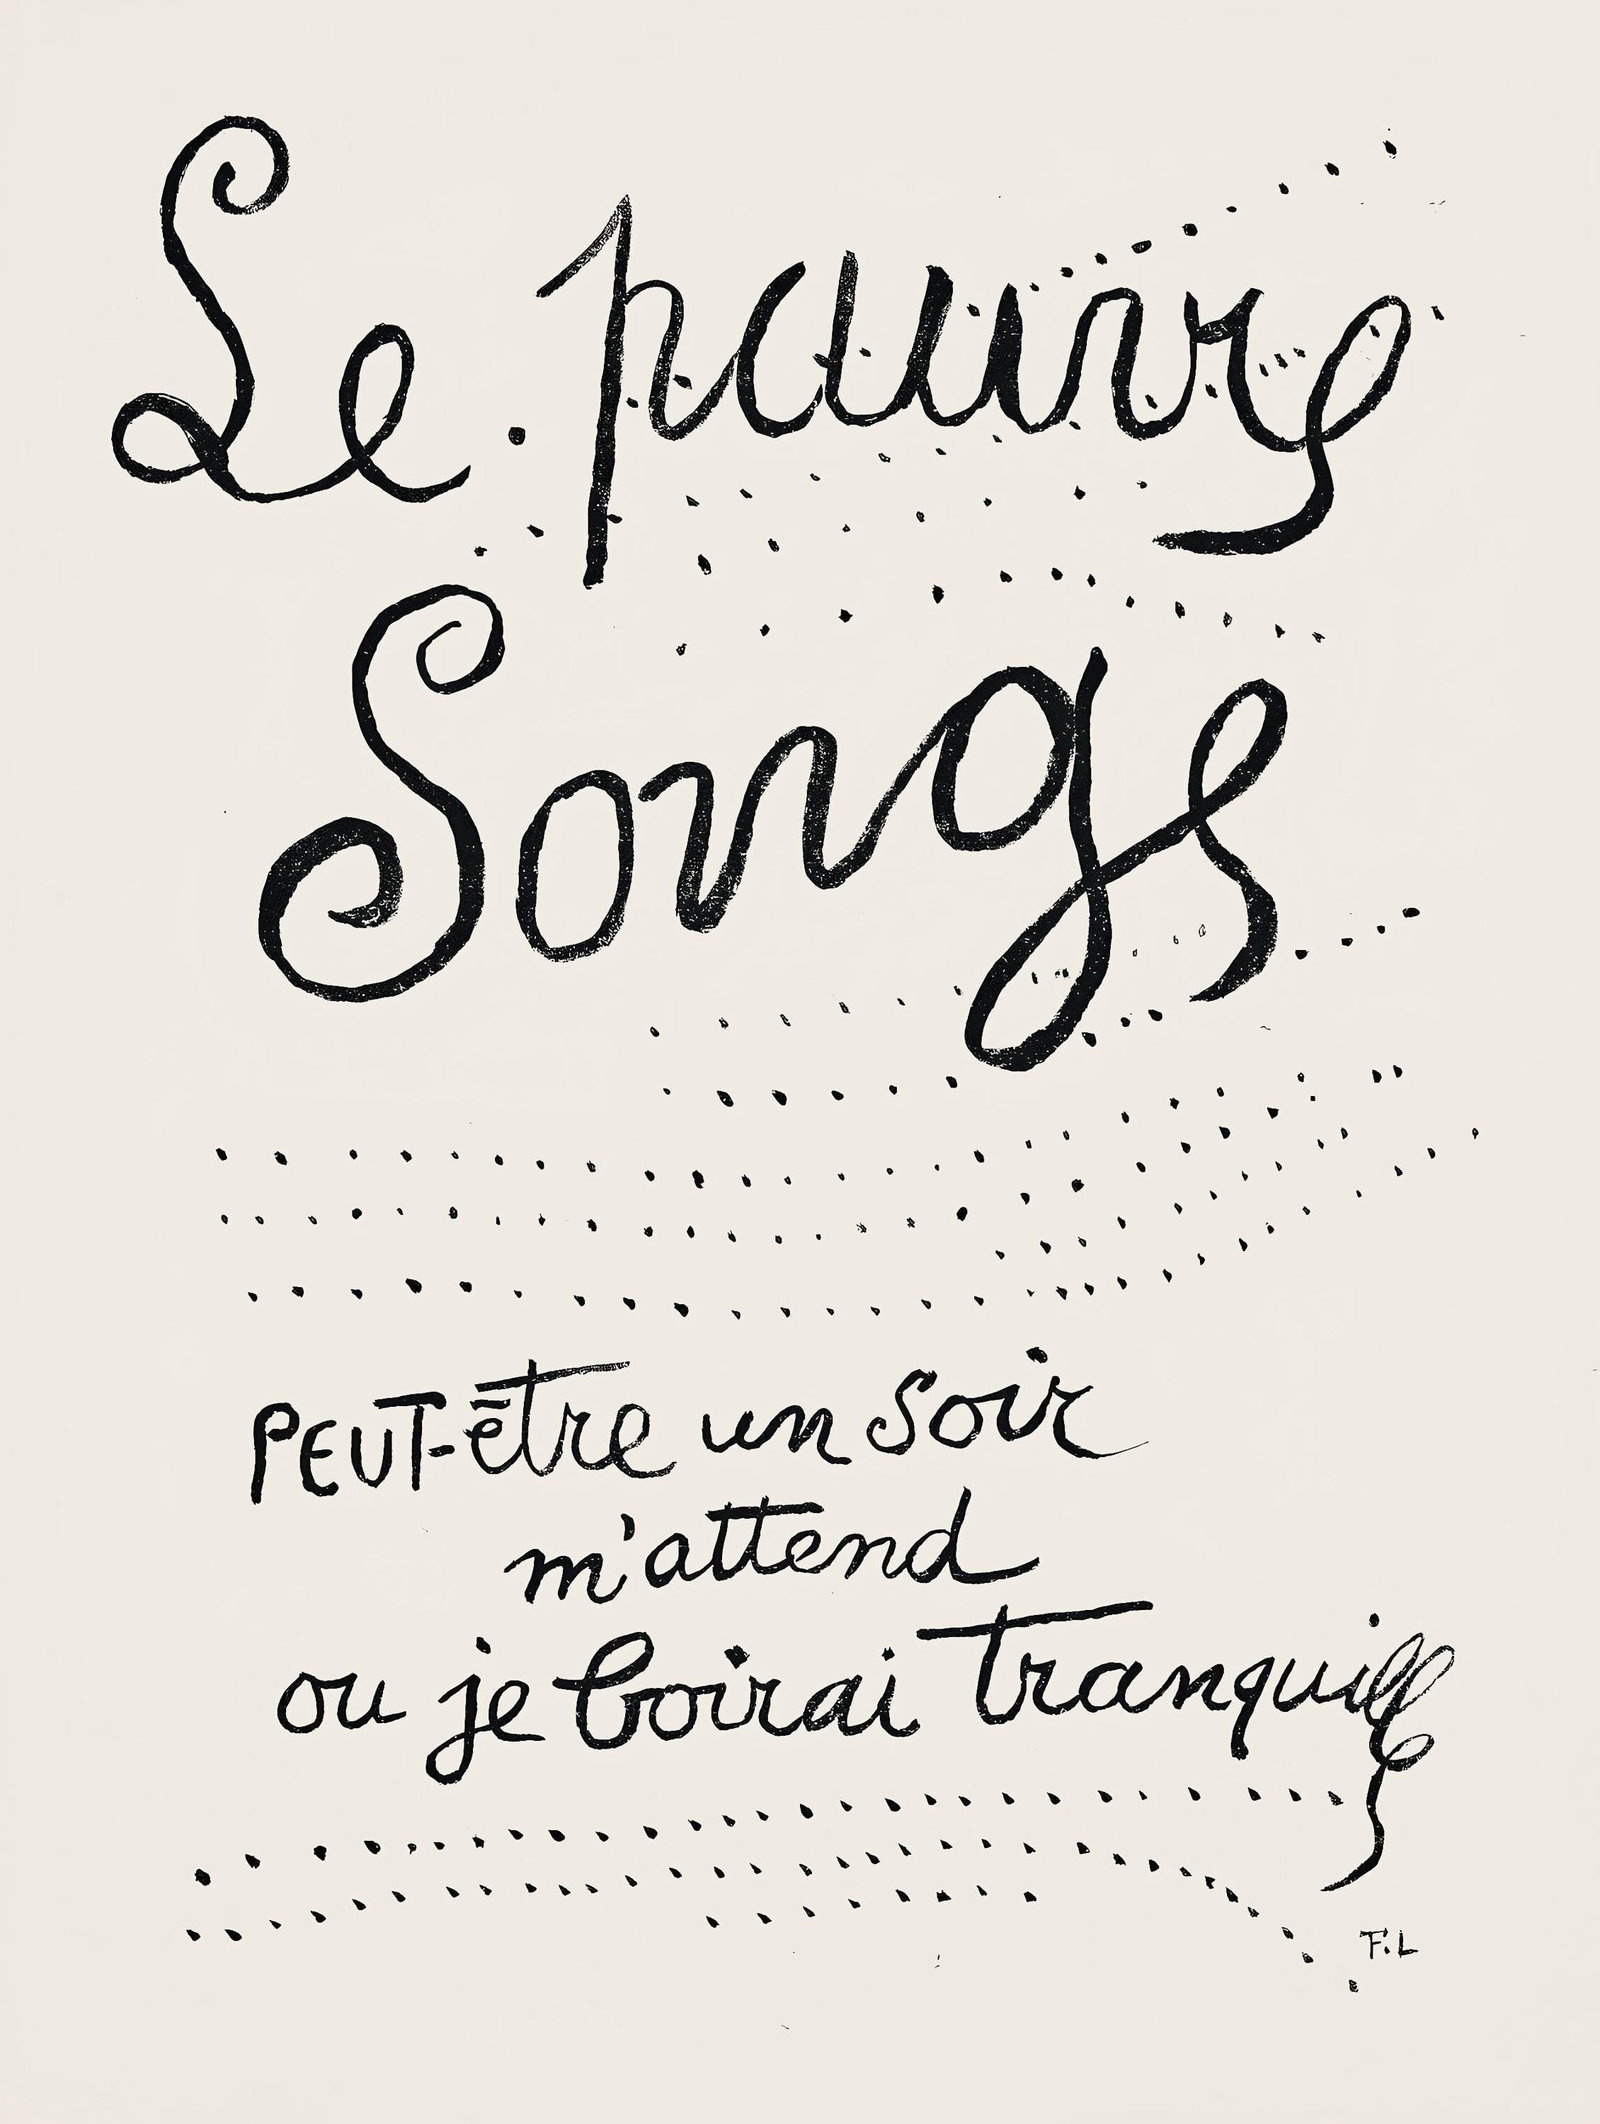 Le pauvre
Songe
PEUT-être un soir
m'attend
ou je boirai tranquille
F.L